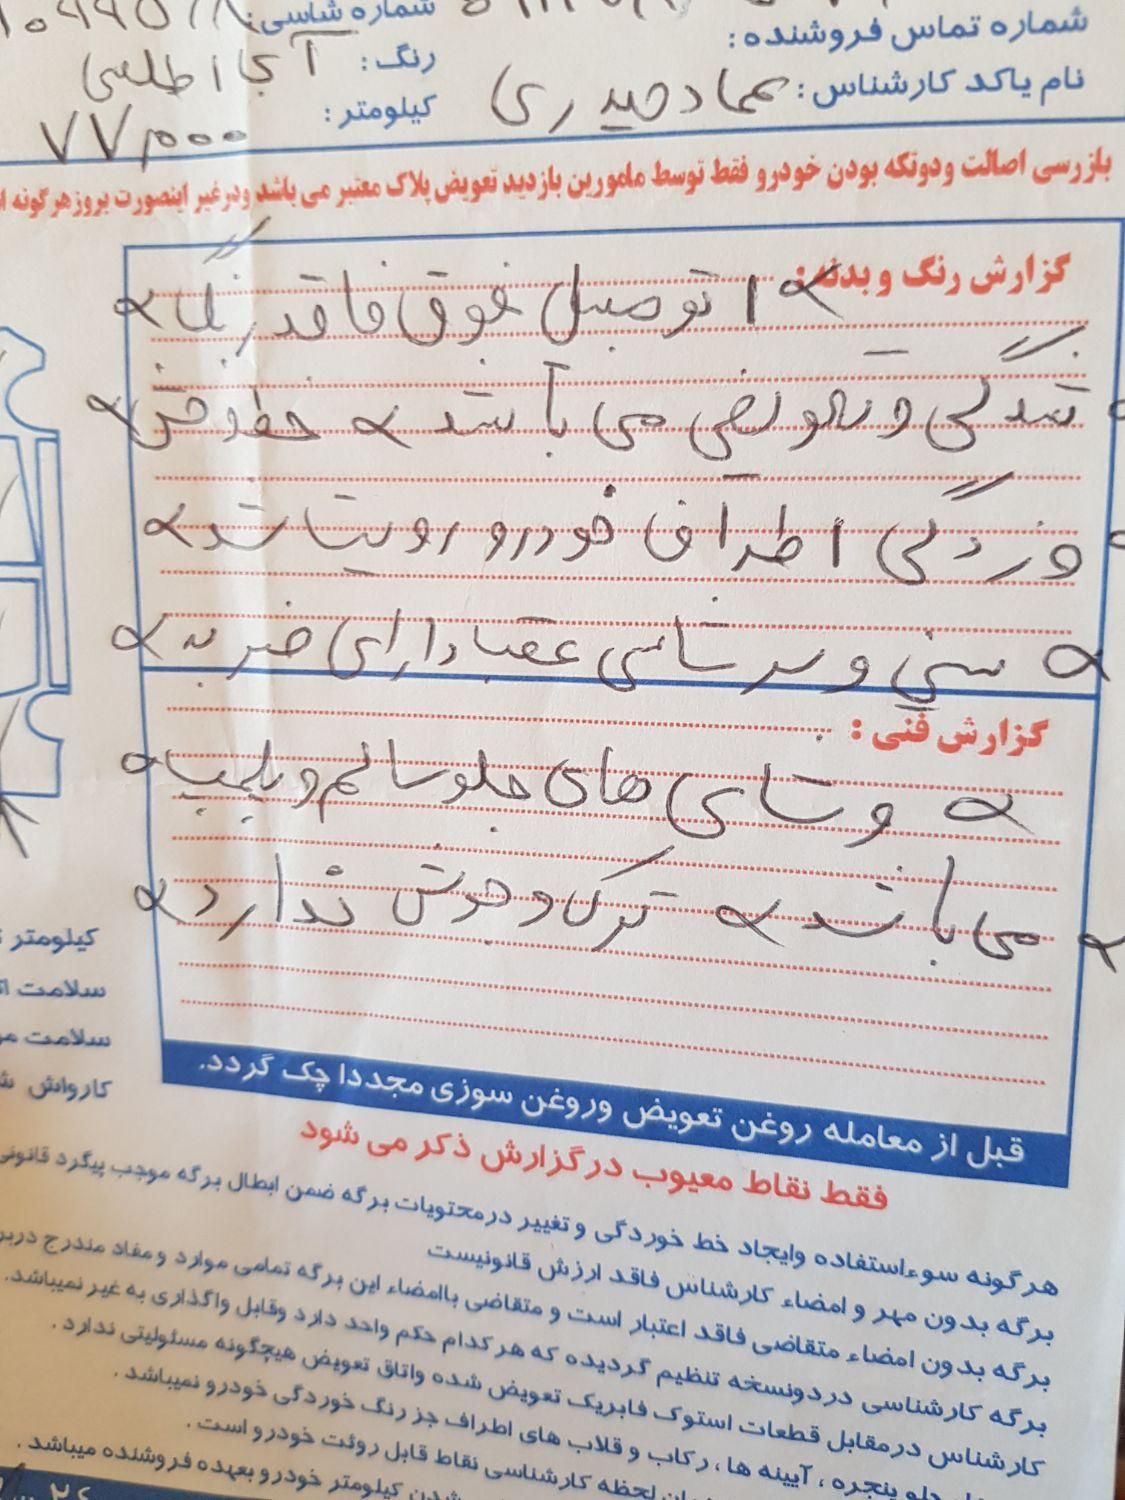 شماره شاسی:
شماره تماس فروشنده:
رنگ: آبی اطلسی
نام یاکد کارشناس: عماد حیدری
کیلومتر: ۷۷,۰۰۰
بازرسی اصالت ودوتکه بودن خودرو فقط توسط مامورین بازدید تعویض پلاک معتبر می باشد ودرغیر اینصورت بروزهرگونه
گزارش رنگ و بدنه:
اتومبیل فوق فاقد رنگ
شدگی و تعویضی می باشد خط و خش
و زدگی اطراف خودرو رویت شد
سینی و سرشاسی عقب دارای ضربه
گزارش فنی:
و شاسی های جلو سالم و پلمپ
می باشد ترک و جوش ندارد
کیلومتر
سلامت
سلامت
کارواش
قبل از معامله روغن تعویض وروغن سوزی مجددا چک گردد.
فقط نقاط معیوب درگزارش ذکر می شود
هرگونه سوءاستفاده وایجاد خط خوردگی و تغییر درمحتویات برگه ضمن ابطال برگه موجب پیگرد قانونی
برگه بدون مهر و امضاء کارشناس فاقد ارزش قانونیست
برگه بدون امضاء متقاضی فاقد اعتبار است و متقاضی باامضاء این برگه تمامی موارد و مفاد مندرج
برگه کارشناسی دردونسخه تنظیم گردیده که هرکدام حکم واحد دارد وقابل واگذاری به غیر نمیباشد.
کارشناس درمقابل قطعات استوک فابریک تعویض شده واتاق تعویض هیچگونه مسئولیتی ندارد.
جلو پنجره، آیینه ها، رکاب و قلاب های اطراف جز رنگ خوردگی خودرو نمیباشد.
لحظه کارشناسی نقاط قابل روئت خودرو است.
کیلومتر خودرو بعهده فروشنده میباشد.